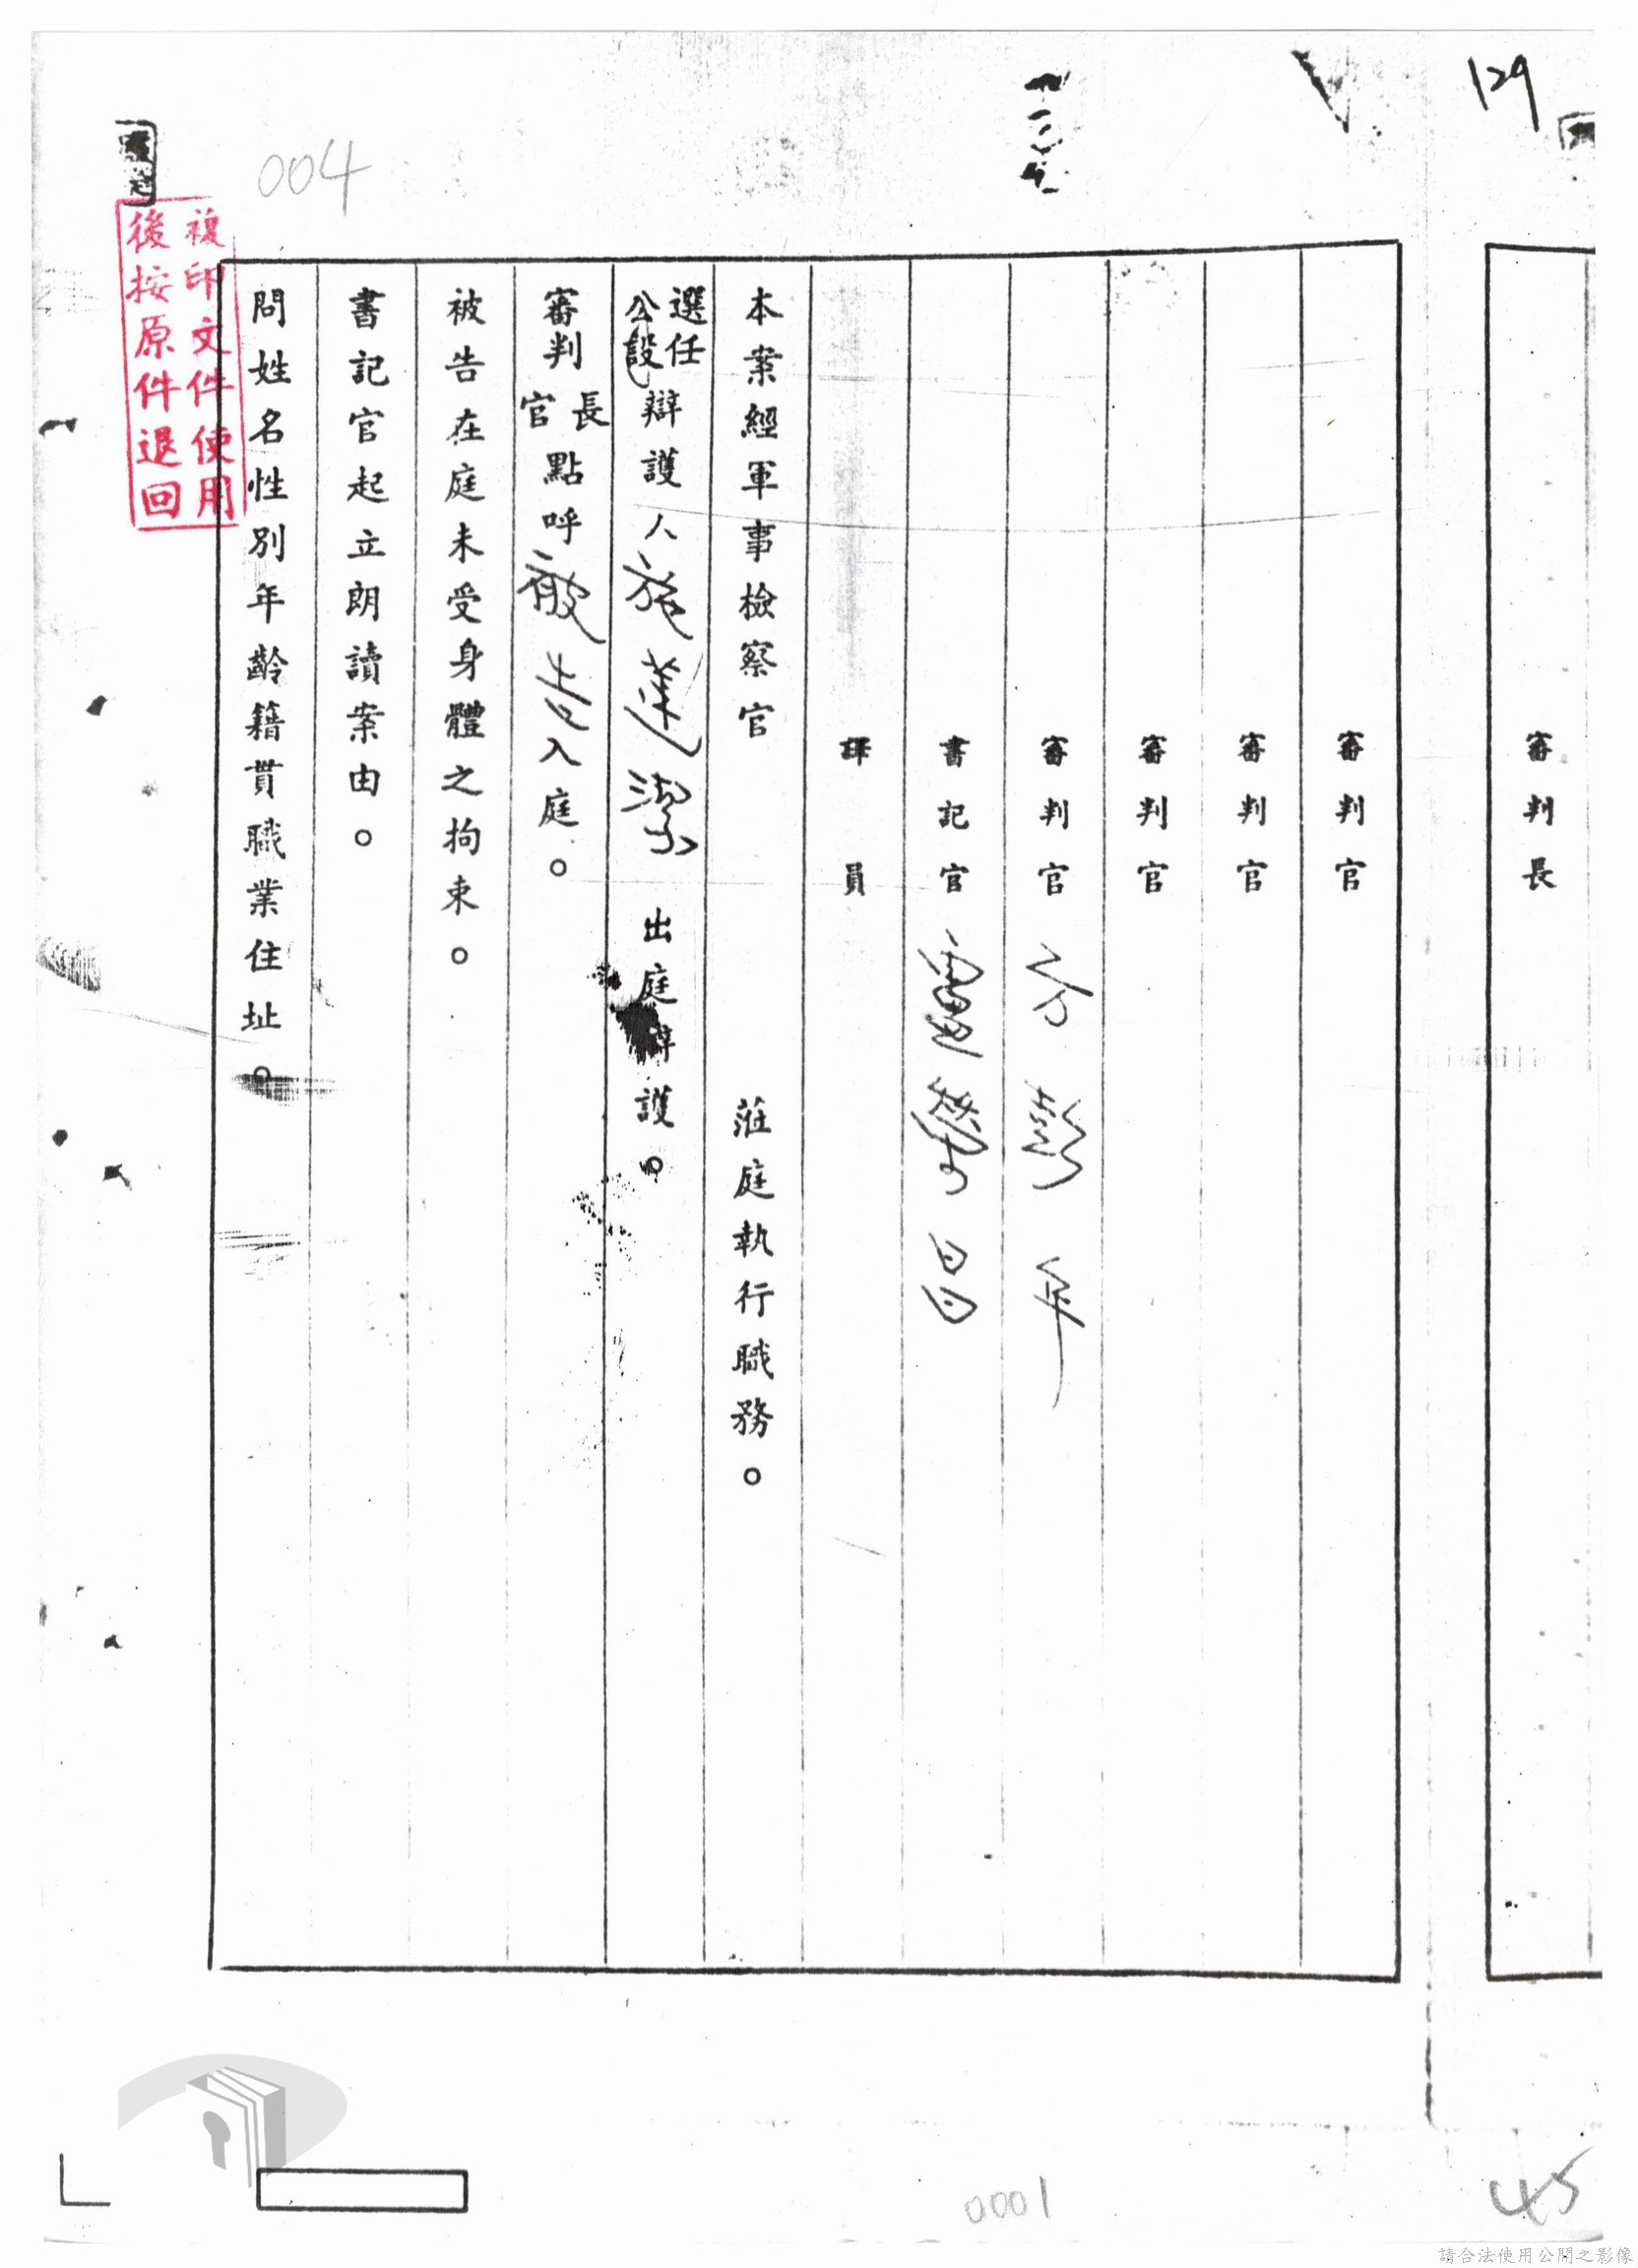 129
004
複印文件使用
後按原件退回
審判長
審判官
審判官
審判官
審判官 方彭年
書記官
員
本案經軍事檢察官 蒞庭執行職務。
選任
公設
辯護人施蓮潔 出庭辯護。
審判
長
官
點呼被告入庭。
被告在庭未受身體之拘束。
書記官起立朗讀案由。
問姓名性別年齡籍貫職業住址。
0001
45
請合法使用公開之影像